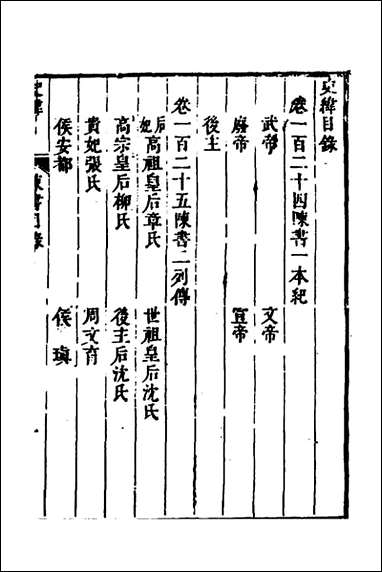 史緯目錄
卷一百二十四陳書一本紀
武帝 文帝
廢帝 宣帝
後主
卷一百二十五陳書二列傳
后妃高祖皇后章氏 世祖皇后沈氏
高宗皇后柳氏 後主后沈氏
貴妃張氏 周文育
侯安都 侯瑱
陳書目錄